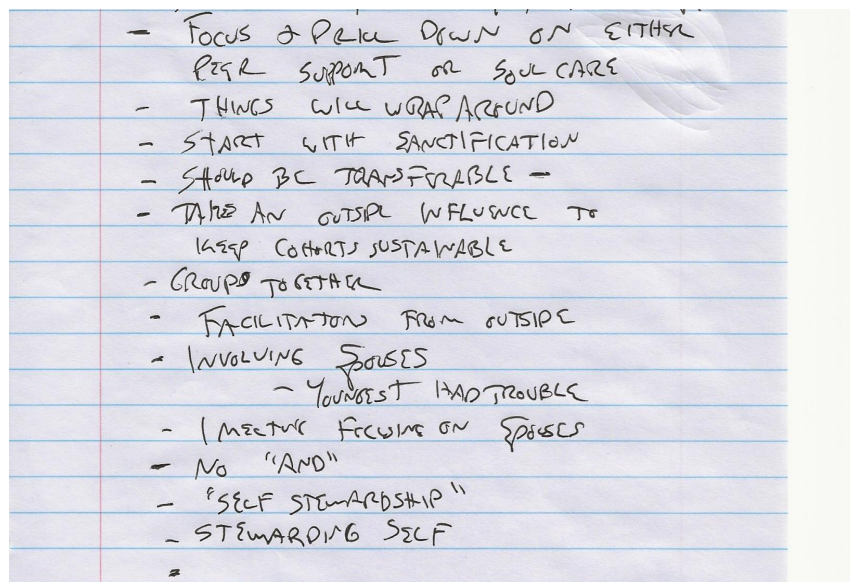 - FOCUS & DRILL DOWN ON EITHER
PEER SUPPORT OR SOUL CARE
- THINGS WILL WRAP AROUND
- START WITH SANCTIFICATION
- SHOULD BE TRANSFERABLE -
- TAKES AN OUTSIDE INFLUENCE TO
KEEP COHORTS SUSTAINABLE
- GROUPS TOGETHER
- FACILITATION FROM OUTSIDE
- INVOLVING SPOUSES
- YOUNGEST HAD TROUBLE
- 1 MEETING FOCUSING ON SPOUSES
- NO "AND"
- "SELF STEWARDSHIP"
- STEWARDING SELF
-